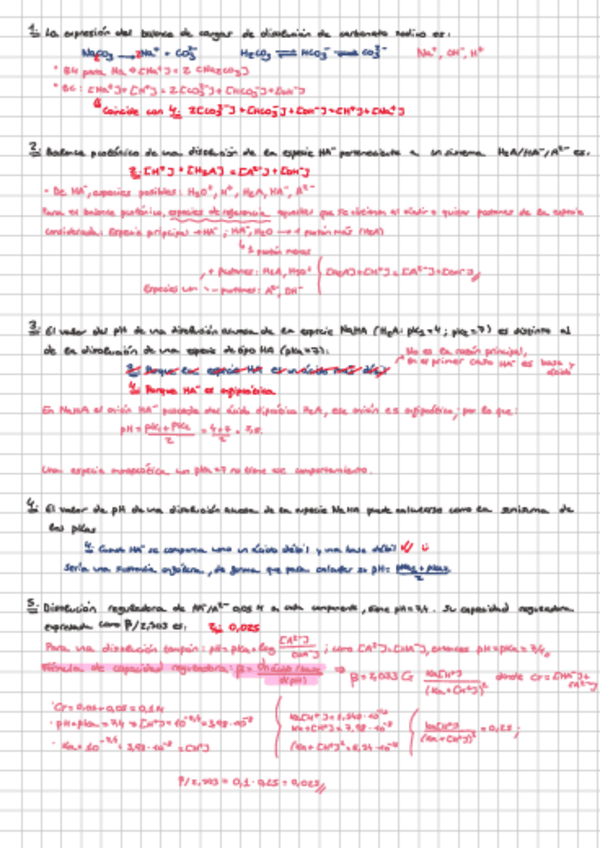 1. La expresión del balance de cargas de disolución de carbonato sódico es:
Na2CO3 → 2Na+ + CO3^2- H2CO3 ⇌ HCO3^- ⇌ CO3^2- Na+, OH-, H+
[Na+] = 2 [Na2CO3]
[Na+]+[H+] = 2[CO3^2-]+[HCO3^-]+[OH-]
Coincide con 4: 2[CO3^2-]+[HCO3^-]+[OH-]=[H+]+[Na+]
2. Balance protónico de una disolución de la especie HA- perteneciente a un sistema H2A/HA-/A^2- es:
2: [H+] + [H2A] = [A^2-] + [OH-]
De HA-, especies posibles: H3O+, H+, H2A, HA-, A^2-
Para el balance protónico, especies de referencia aquellas que se obtienen al añadir o quitar protones de la especie
considerada. Especie principal → HA-; HA-, H2O → 1 protón más (H2A)
1 protón menos
+ protones: H2A, H3O+ [H2A]+[H+] = [A^2-]+[OH-]
Especies con - protones: A^2-, OH-
3. El valor del pH de una disolución acuosa de la especie NaHA (H2A: pk1=4; pk2=7) es distinto al
de la disolución de una especie de tipo HA (pka=7):
No es la razón principal,
Porque la especie HA- es un ácido más débil
en primer caso HA- es base y ácido
4. Porque HA- es anfiprótica
En NaHA el anión HA- procede del ácido diprótico H2A, ese anión es anfiprótico, por lo que:
pH = (pk1+pk2)/2 = (4+7)/2 = 5,5.
Una especie monoprótica con pka=7 no tiene ese comportamiento.
4. El valor de pH de una disolución acuosa de la especie NaHA puede calcularse como la semisuma de
los pKas
4. Cuando HA- se comporta como un ácido débil y una base débil
Sería una sustancia anfótera, de forma que para calcular su pH = (pka1 + pka2)/2
5. Disolución reguladora de HA-/A^2- 0,05 M a cada componente, tiene pH=7,4. Su capacidad reguladora
expresada como β/2,303 es: 2: 0,025
Para una disolución tampón: pH = pka + log [A^2-]/[HA-]; como [A^2-]=[HA-], entonces pH=pka=7,4
Fórmula de capacidad reguladora: β = d(ácido/base)/d(pH) ⇒ β = 2,033 CT ka[H+]/(ka+[H+])^2 donde CT = [HA-]+[A^2-]
CT = 0,05+0,05 = 0,1 M
pH=pka = 7,4 → [H+] = 10^-7,4 = 3,98·10^-8
ka = 10^-7,4 = 3,98·10^-8 = [H+]
ka+[H+] = 7,98·10^-8
ka[H+]/(ka+[H+])^2 = 0,25;
β/2,303 = 0,1·0,25 = 0,025